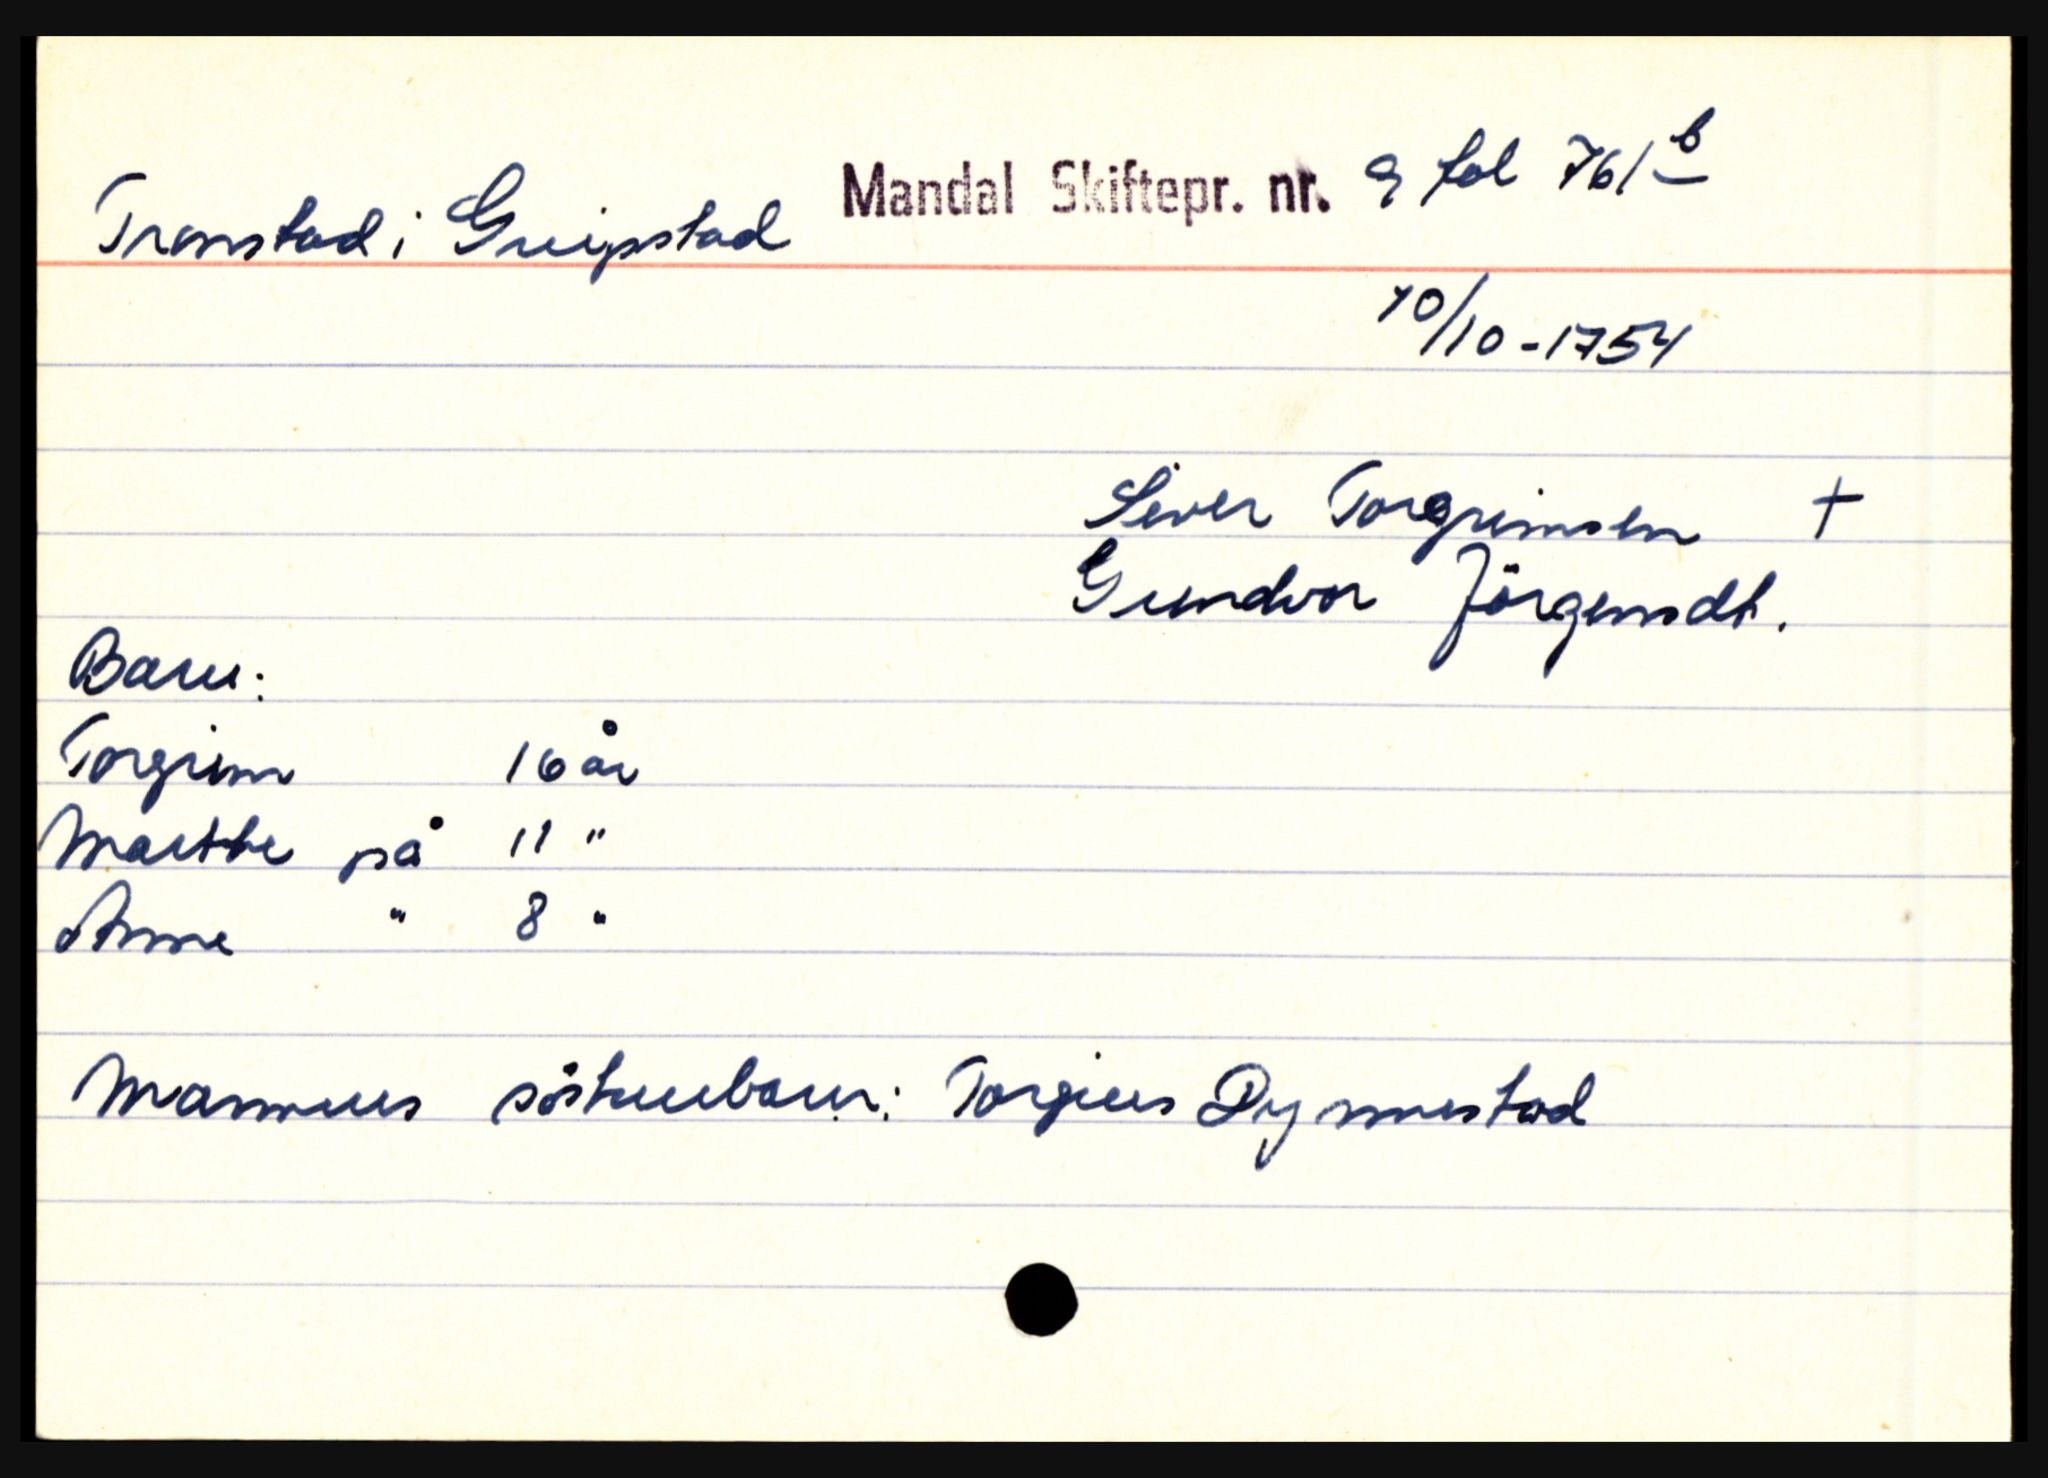 Tronstad i Greipstad Mandal Skiftepr. nr. 9 fol 761 b
10/10-1754
Siver Torgrimsen †
Gundvor Jörgensdt.
Barn:
Torgrim 16 år
Marthe på 11 "
Anne " 8 "
Mannens söskenbarn: Torgius Dynnestad